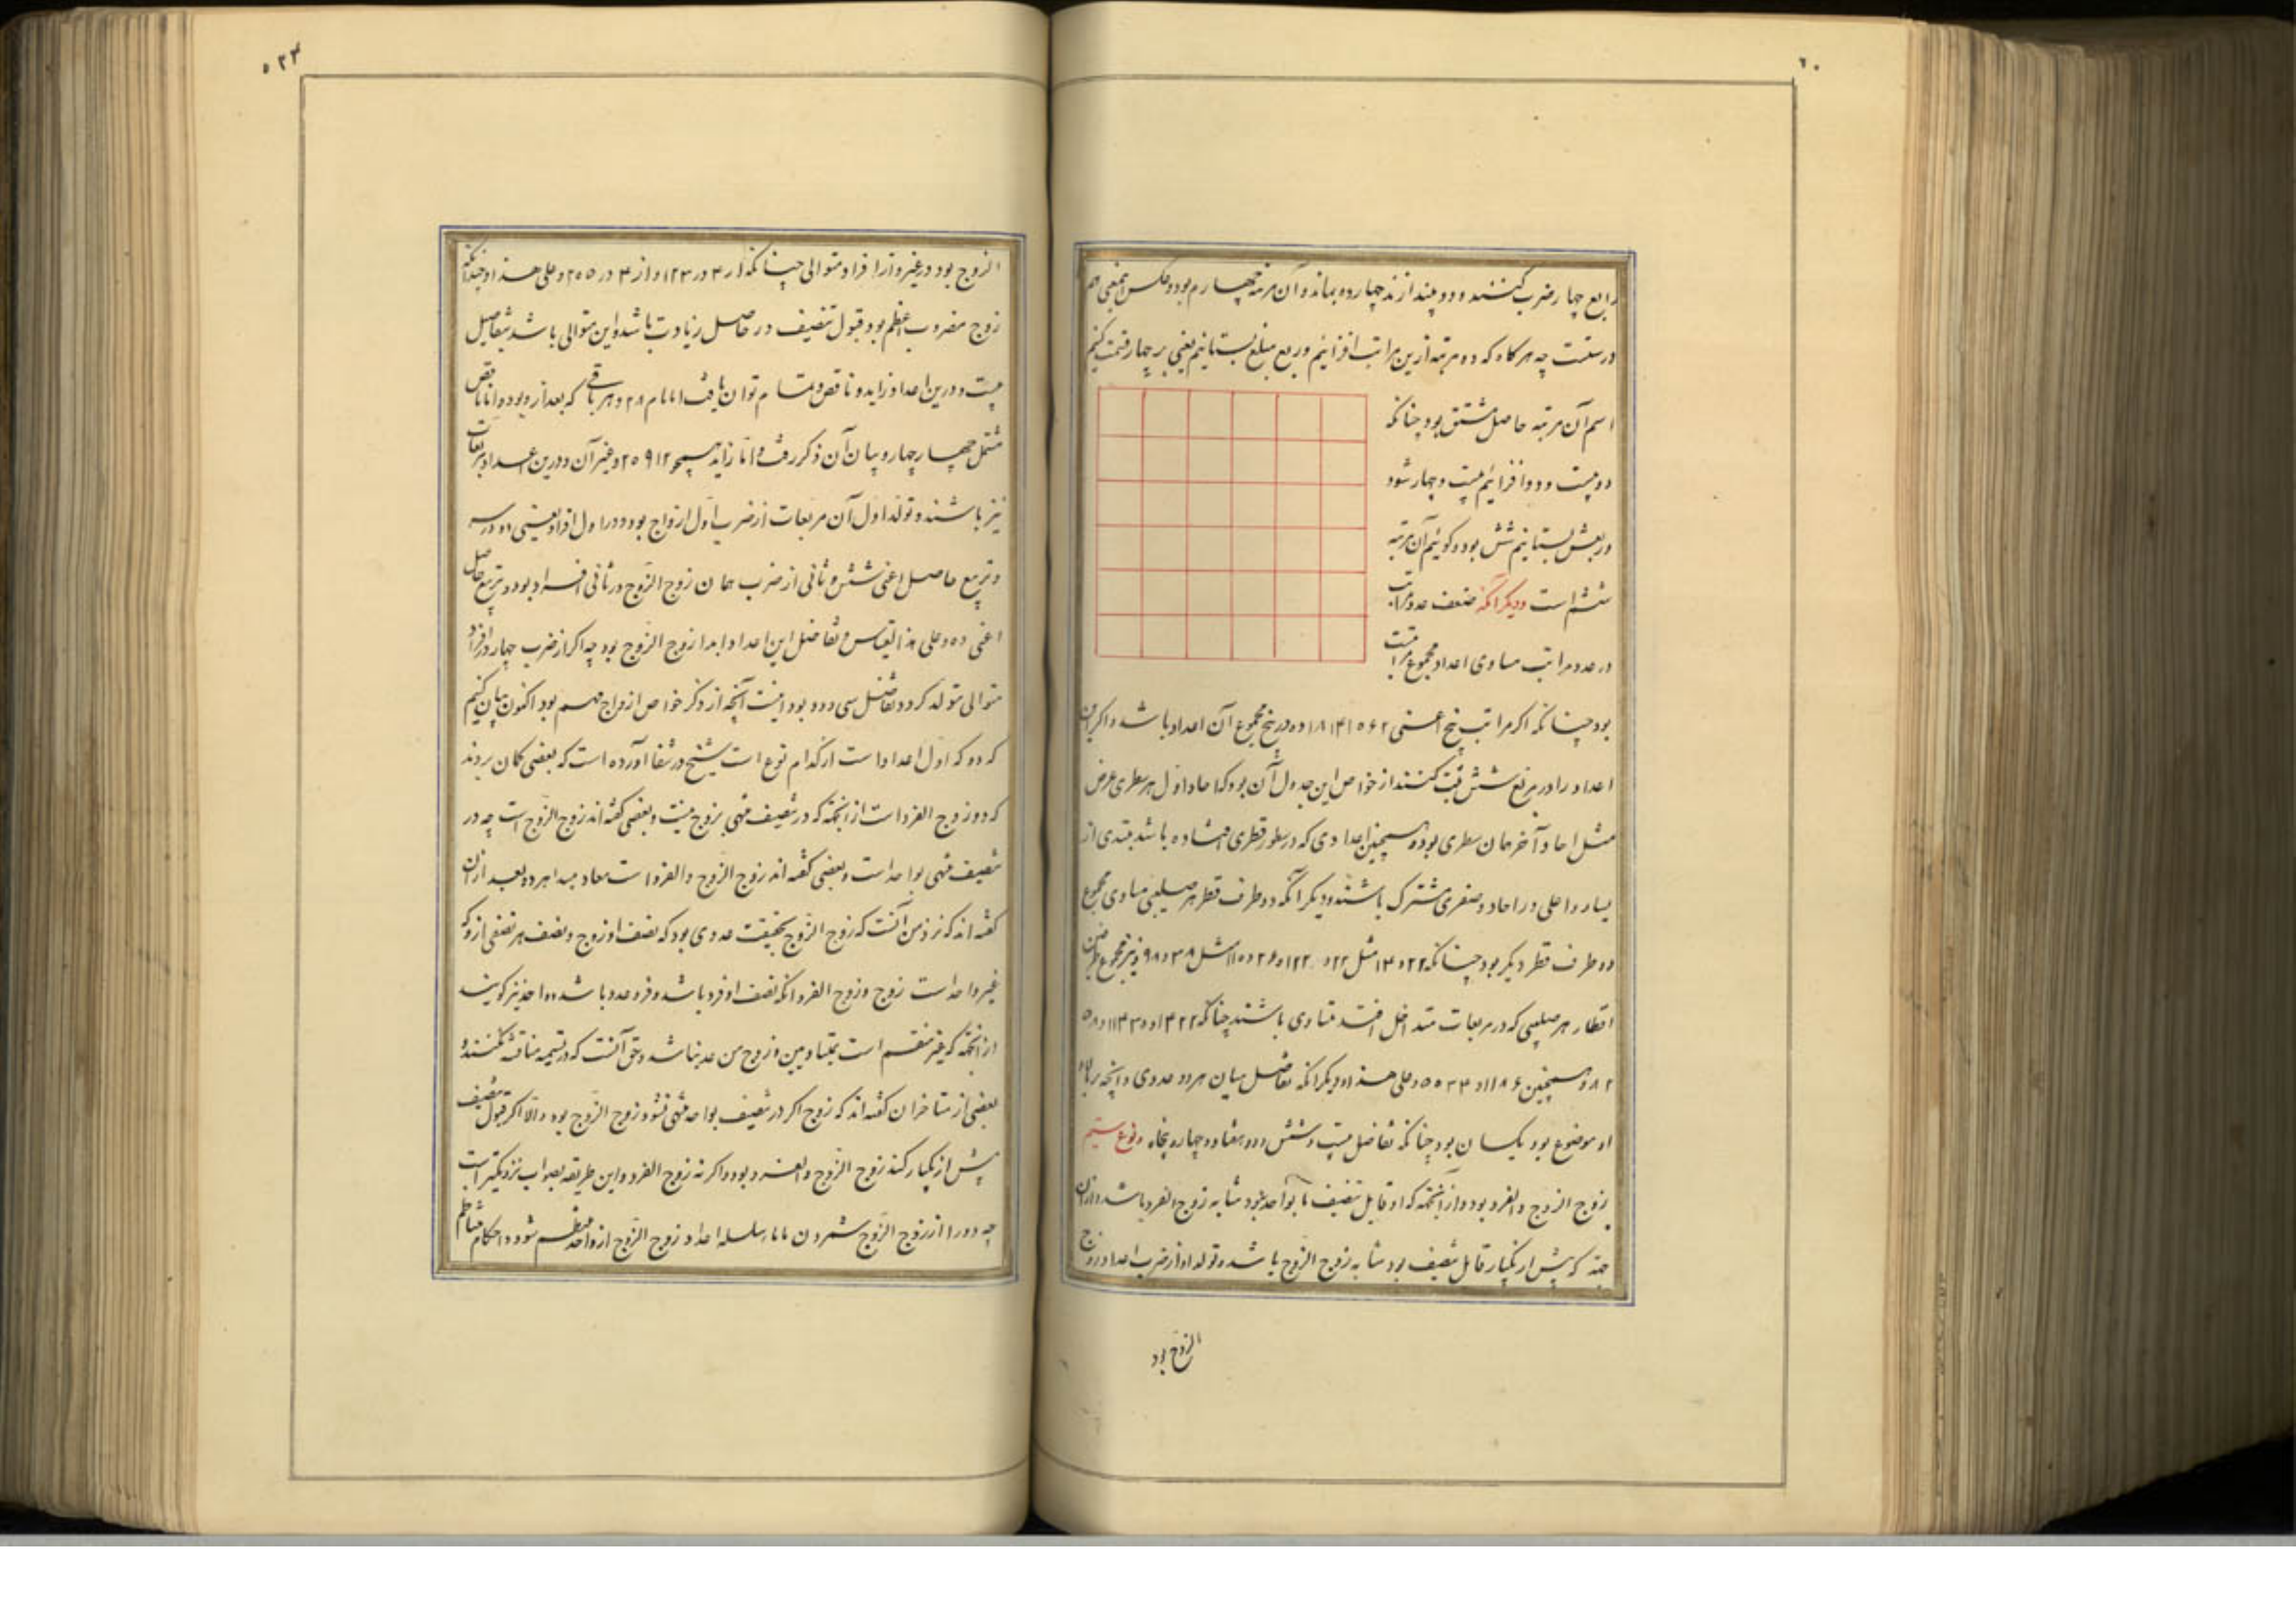 رابع چهار ضرب کنند و دو بیندازند چهارده بماند و آن مرتبه چهارم بود و عکس این معنی هم
درستست چه هرگاه که ده مرتبه ازین مراتب افزائیم و ربع مبلغ بستانیم یعنی بر چهار قسمت کنیم
اسم آن مرتبه حاصل مشتق بود چنانکه
دو بیست و دو افزائیم بیست و چهار شود
وربعش بستانیم شش بود و گوئیم آن مرتبه
ششم است و دیگر آنکه ضعف عدد مراتب
در عدد مراتب مساوی اعداد مجموع مراتب
بود چنانکه اگر مراتب پنج اعنی ۲ ۶ ۱۰ ۱۴ ۱۸ ده در پنج مجموع آن اعداد باشد و اگر این
اعداد را در مربع شش ثبت کنند از خواص این جدول آن بود که احاد اول هر سطری عرض
مثل احاد آخر همان سطری بود و همچنین اعدادی که در سطور قطری افتاده باشد مبتدی از
یسار و اعلی در احاد و صفری مشترک باشند و دیگر آنکه دو طرف قطر هر صلیبی مساوی مجموع
دو طرف قطر دیگر بود چنانکه
اقطار هر صلیبی که در مربعات متداخل افتد متساوی باشند چنانکه
و همچنین و علی هذا و دیگر آنکه تفاضل میان هر دو عددی و آنچه بر بالای
او موضوع بود یکسان بود چنانکه تفاضل بیست و شش و دو و هفتاد و چهار و پنجاه و نوع سیم
زوج الزوج و الفرد بود و از آنجهة که او قابل تنصیف تا بواحد نبود مشابه زوج الفرد باشد و ازان
جهة که بیش از یکبار قابل تنصیف بود مشابه زوج الزوج باشد و تولد او از ضرب اعداد زوج
الزوج بود
۵۲۳
الزوج بود در غیر واز افراد متوالی چنانکه از ۴ در ۳ ۱۲ و از ۴ در ۵ ۲۰ و علی هذا و چندانکه
زوج مضروب اعظم بود قبول تنصیف در حاصل زیادت باشد و این متوالی باشد بتفاضل
بیست و درین اعداد زاید و ناقص و تمام توان یافت اما تام ۲۸ و هر باقی که بعد ازو بود و اما ناقص
مثل چهار چهار و بیان آن ذکر رفت و اما زاید همچو ۱۲ و ۲۰ و غیر آن و درین اعداد مربعات
نیز باشند و تولد اول آن مربعات از ضرب اول ازواج بود در اول افراد یعنی دو در سه
و تربیع حاصل اعنی شش و ثانی از ضرب همان زوج الزوج در ثانی افراد بود و تربیع حاصل
اعنی ده و علی هذا القیاس و تفاضل این اعداد ابدا زوج الزوج بود چه اگر از ضرب چهار در افراد
متوالی متولد گردد تفاضل سی و دو بود اینست آنچه از ذکر خواص ازواج مهم بود اکنون بیان کنیم
که دو که اول اعداد است از کدام نوع است شیخ در شفا آورده است که بعضی گمان بردند
که دو زوج الفرد است از آنجهة که در تنصیف منتهی بزوج نیست و بعضی گفته اند زوج الزوج است چه در
تنصیف منتهی بواحد است و بعضی گفته اند زوج الزوج و الفرد است و بعد ازان
گفته اند که نزد من آنست که زوج الزوج بحقیقت عددی بود که نصف او زوج و نصف هر نصفی ازو که
غیر واحد است زوج و زوج الفرد آنکه نصف او فرد باشد و فرد عدد باشد و واحد نیز گویند
از آنجهة که غیر منقسم است بمتساویین و زوج من عدد نباشد و حق آنست که در تسمیه مناقشه نکنند و
بعضی از متاخران گفته اند که زوج اگر در تنصیف بواحد منتهی نشود زوج الزوج بود و الا اگر قبول تنصیف
بیش از یکبار کند زوج الزوج و الفرد بود و اگر نه زوج الفرد و این طریقه بصواب نزدیکتر است
چه دو را از زوج الزوج شمردن تا سلسله اعداد زوج الزوج از واحد منتظم شود و احکام